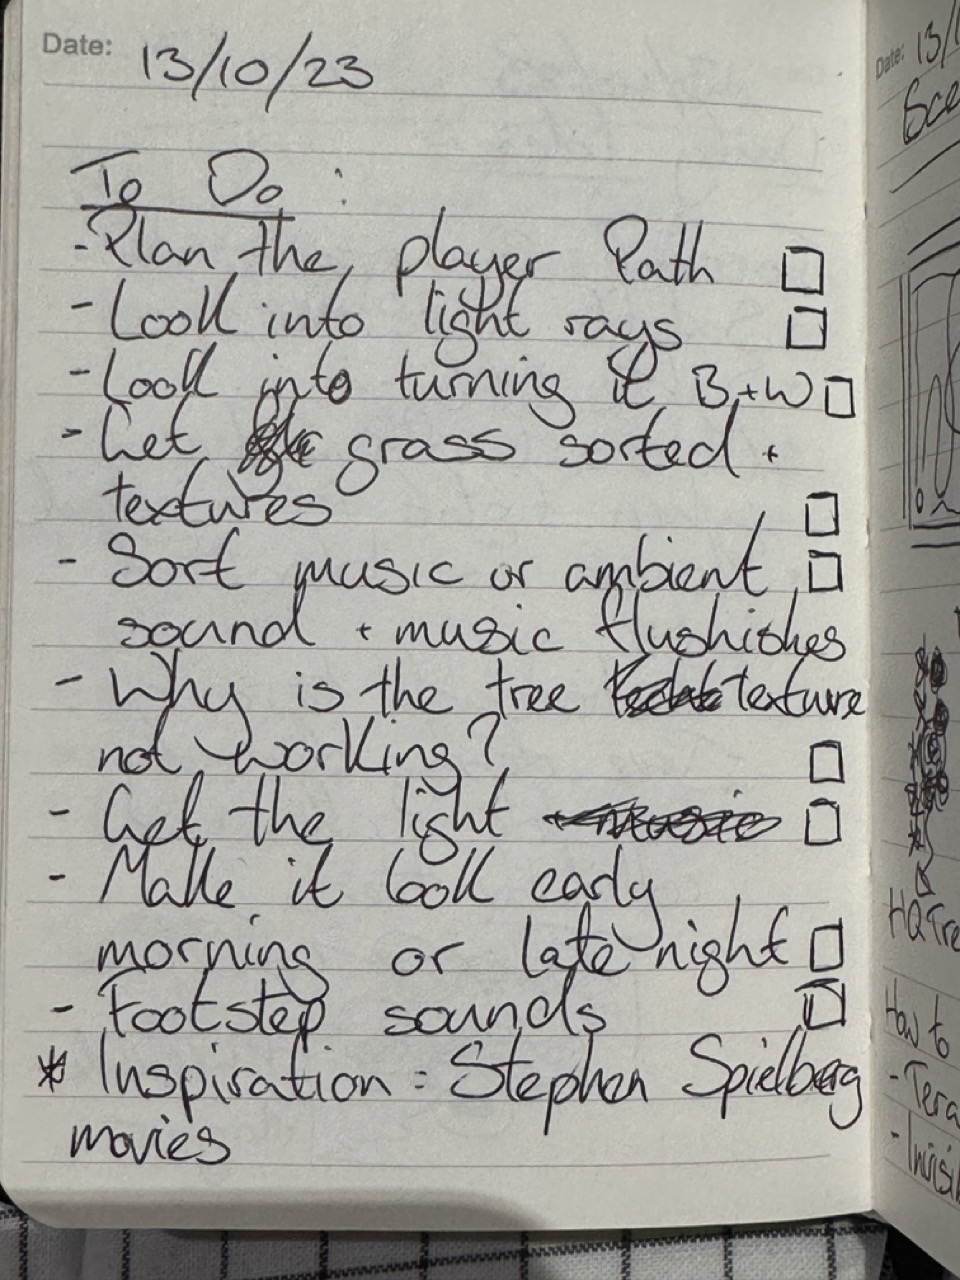 Date: 13/10/23
To Do :
- Plan the player Path
- Look into light rays
- Look into turning it B+W
- Get grass sorted +
textures
- Sort music or ambient
sound + music flushishes
- Why is the tree texture
not working?
- Get the light
- Make it look early
morning or late night
- Footstep sounds
* Inspiration : Stephen Spielberg
movies
Date: 13/
Sce
HQ Tre
How to
- Tera
- Invisi